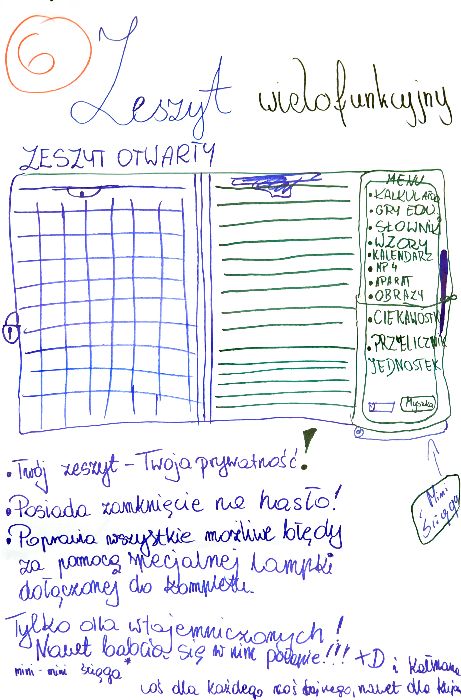 6
Zeszyt wielofunkcyjny
ZESZYT OTWARTY
MENU
• KALKULATOR
• GRY EDU.
• SŁOWNIK
• WZORY
• KALENDARZ
• MP4
• APARAT
• OBRAZY
• CIEKAWOSTKI
• PRZELICZNIK
JEDNOSTEK
Myszka
Mini
Ściąga
• Twój zeszyt - Twoja prywatność!
• Posiada zamknięcie na hasło!
• Poprawia wszystkie możliwe błędy
za pomocą specjalnej lampki
dołączonej do kompletu.
Tylko dla wtajemniczonych!
Nawet babcia się w nim połapie!!! XD
mini-mini ściąga*
coś dla każdego coś dobrego, nawet dla